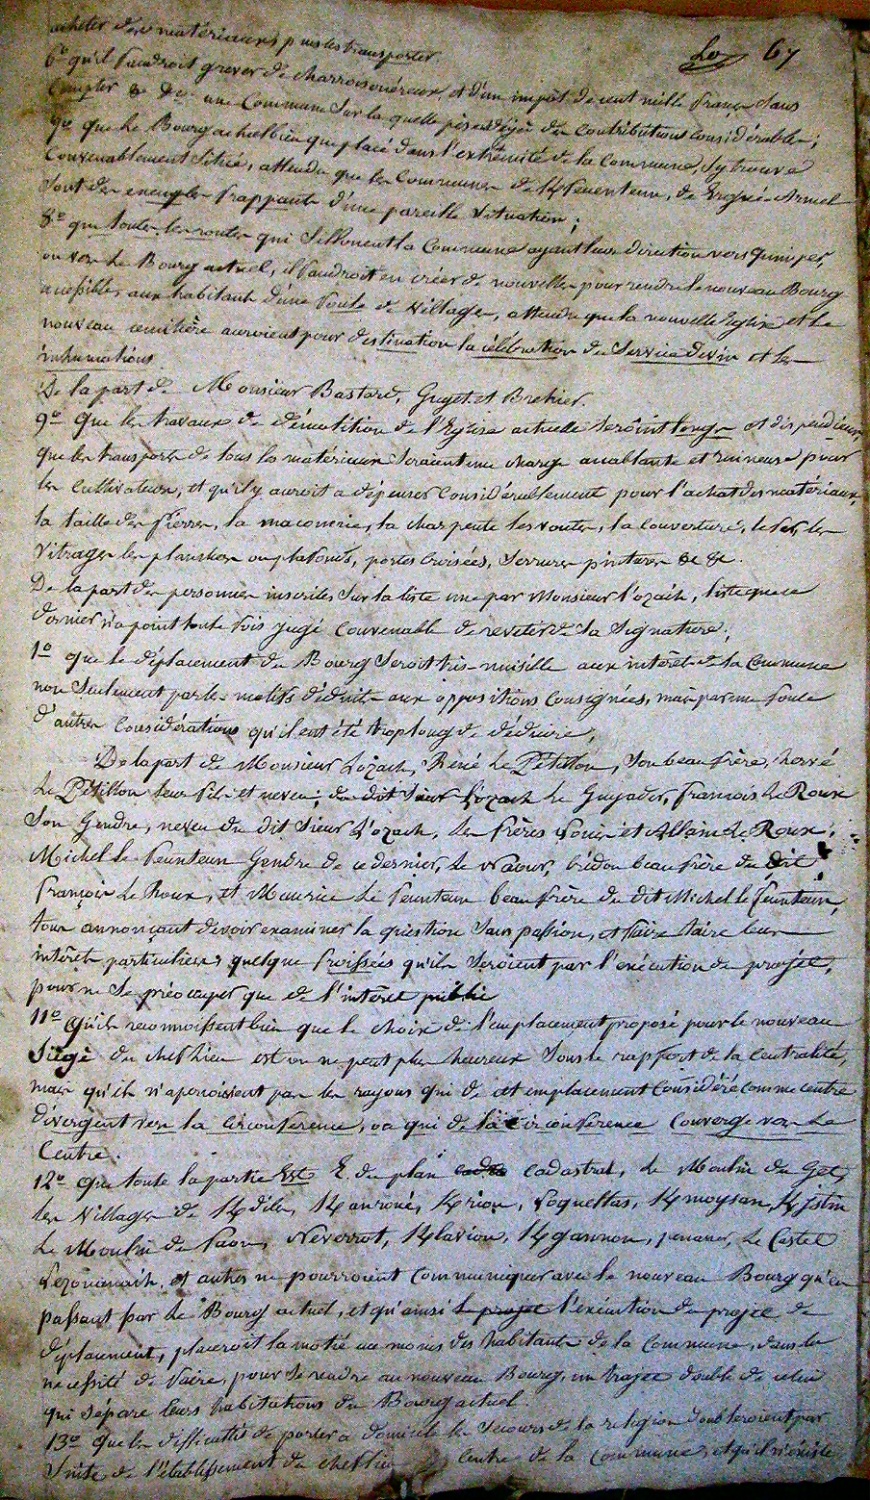 acheter des matériaux puis les transporter.
67
6° qu'il faudroit grever de charrois onéreux, et d'un impôt de cent mille francs sans
compter &c &c une Commune sur la quelle pèsent déjà des contributions considérables;
7° que le Bourg actuel bien que placé dans l'extrêmité de la commune, s'y trouve
convenablement situé, attendu que les Communes de Kfeunteun, de Ergué-Armel
sont des exemples frappants d'une pareille situation;
8° que toutes les routes qui sillonent la Commune ayant leur direction vers Quimper,
ou vers le Bourg actuel, il faudroit en créer de nouvelles pour rendre le nouveau Bourg
accessible aux habitants d'une foule de Villages, attendu que la nouvelle Eglise et le
nouveau cemitière auroient pour destination la célébration du Service Divin et les
inhumations
De la part de Monsieur Bastard, Guyet et Brehier.
9° Que les travaux de démolition de l'Eglise actuelle seroint longs et dispendieux
que les transports de tous les matériaux seraient une charge accablante et ruineuse pour
les cultivateurs, et qu'il y auroit a dépenser considérablement pour l'achat des matériaux,
la taille des pierres, la maconerie, la charpente les voutes, la couverture, le fer, les
vitrages les planches ou plafonds, portes croisées, serrures pintures &c &c.
De la part des personnes inscrites sur la liste mise par Monsieur l'ozach, liste que ce
dernier n'a point toute fois jugé convenable de revêtir de sa signature;
1° que le déplacement du Bourg seroit très-nuisible aux intérêts de la Commune
non seulement par les motifs déduits aux oppositions consignées, mais par une foule
d'autres considérations qu'il eut été trop long de déduire;
De la part de Monsieur Lozach, René Le Pétillon, son beau frère, hervé
Le Pétillon leur fils et neveu; du dit Sieur l'ozach le Guyader, françois Le Roux
son Gendre, neveu du dit Sieur L'ozach, les frères et Allain Le Roux;
Michel le feunteun Gendre de ce dernier, Le Naour, bidon beau frère du dit
françois Le Roux, et Maurice Le feunteun beau frère du dit Michel le feunteun,
tous annonçant devoir examiner la question sans passion, et faire taire leurs
intérêts particuliers quelque froissées qu'ils seroient par l'exécution du projet,
pour ne se préoccuper que de l'intérêt public
11° Qu'ils reconnoissent bien que le choix de l'emplacement proposé pour le nouveau
siège du chef lieu est on ne peut plus heureux sous le rapport de la centralité,
mais qu'ils n'apercoivent pas les rayons qui de cet emplacement considéré comme centre
divergent vers la circonférence, où qui de la circonférence converge vers Le
Centre.
12° Que toute la partie Est E. du plan cadastral, le Moulin du Get,
les Villages de Kdiles, Kanroué, Krion, Voquettas, Kmoysan, Kjstin
Le Moulin de faou, Neverrot, Klaviou, Kgannon, penanec, Le Castel
Lezouanach, et autres ne pourroient communiquer avec le nouveau Bourg qu'en
passant par Le Bourg actuel, et qu'ainsi le projet l'exécution du projet de
déplacement, placeroit la moitié au moins des habitants de la Commune, dans la
nécessité de faire, pour se rendre au nouveau Bourg, un trajet double de celui
qui sépare leurs habitations du Bourg actuel.
13° Que les difficultés de porter a domicile les secours de la religion doubleroient par
suite de l'établissement du chef lieu centre de la commune, et qu'il n'existe